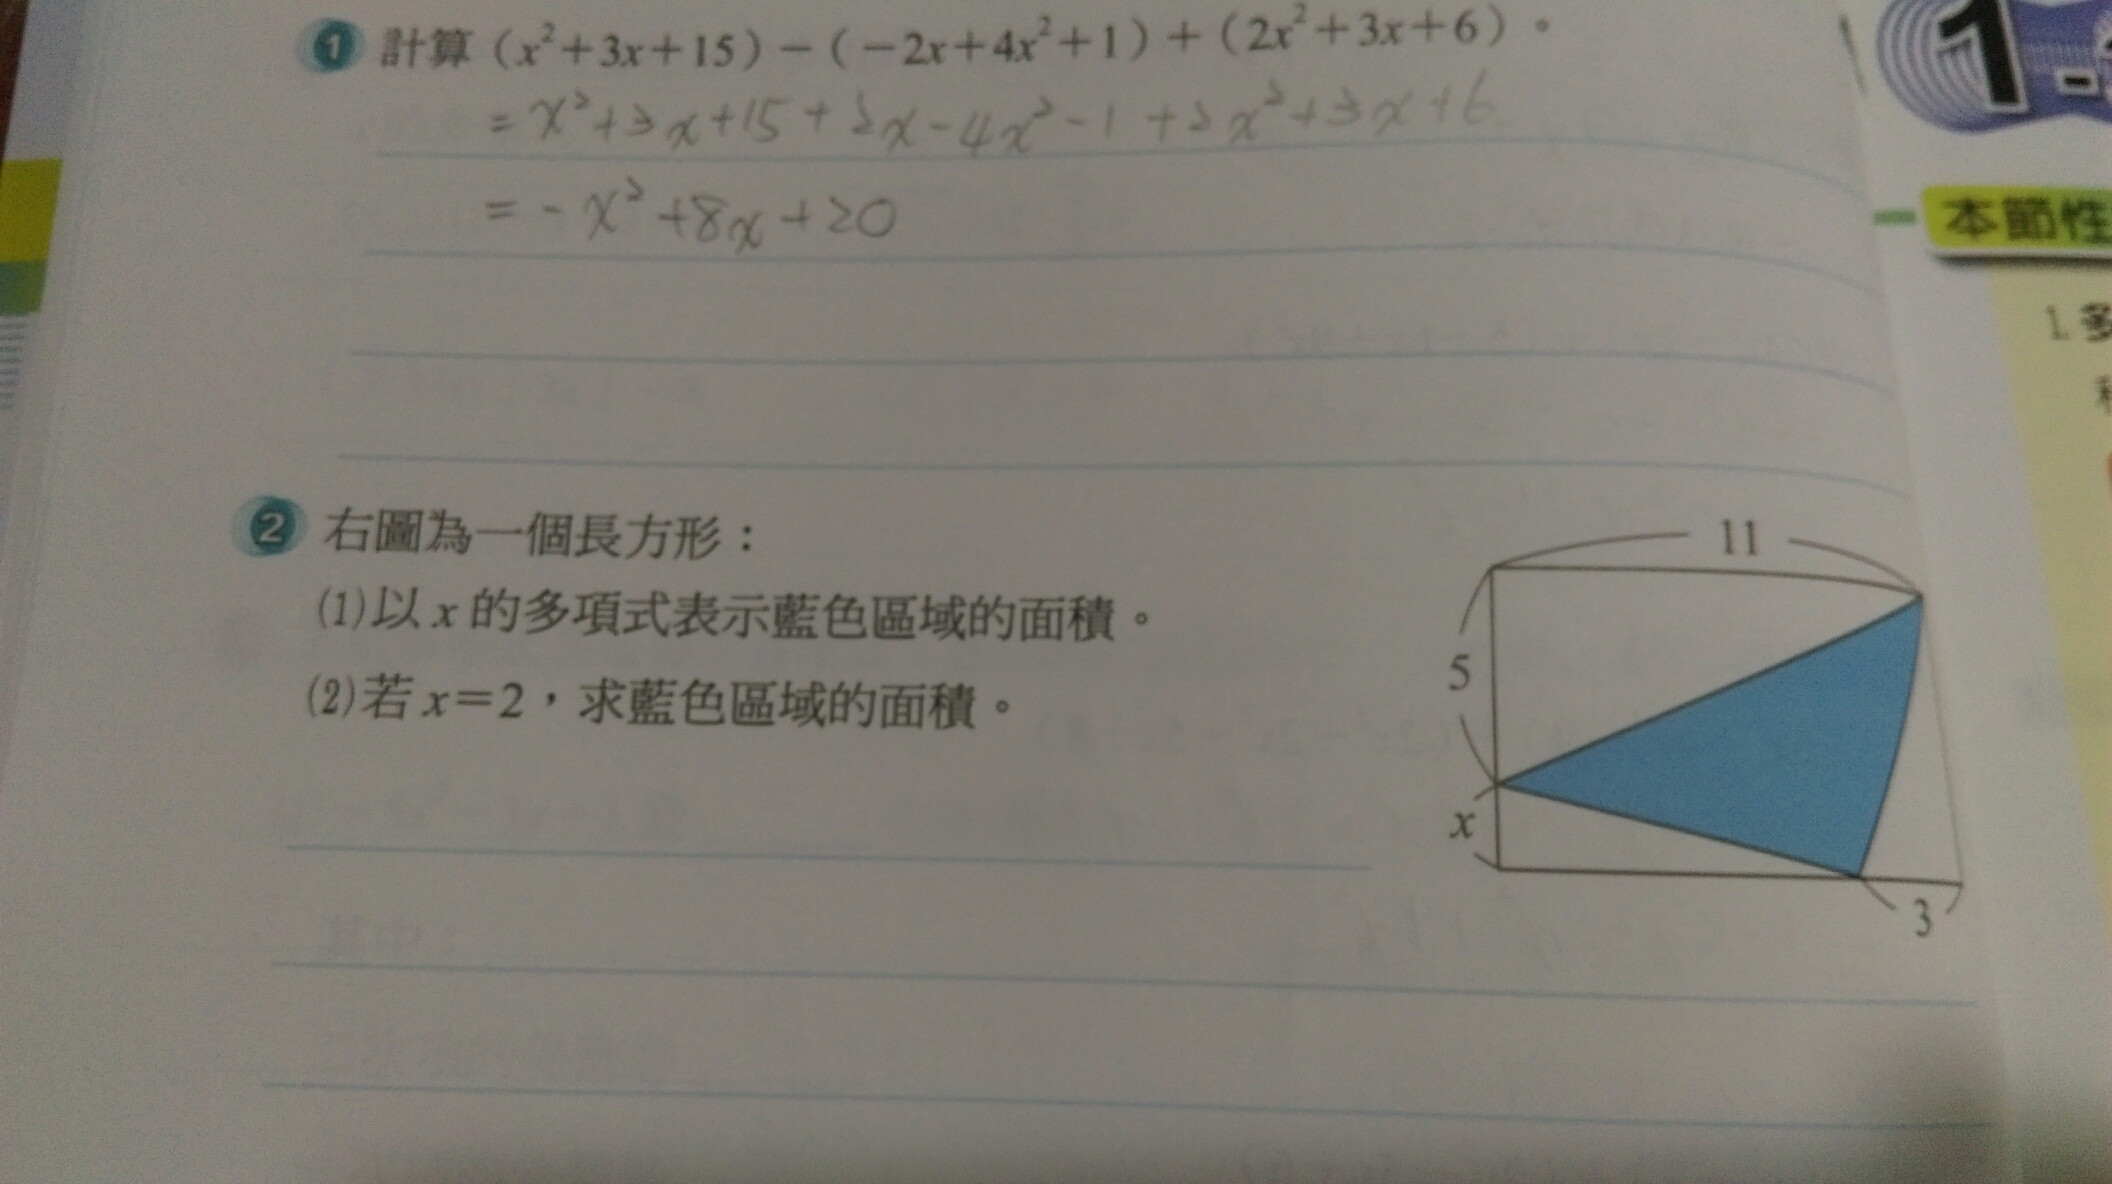 1 計算（x²+3x+15）－（－2x+4x²+1）＋（2x²+3x+6）。
= x²+3x+15+2x-4x²-1+2x²+3x+6
= -x²+8x+20
2 右圖為一個長方形：
(1)以 x 的多項式表示藍色區域的面積。
(2)若 x=2，求藍色區域的面積。
11
5
x
3
1-
本節性
1. 多